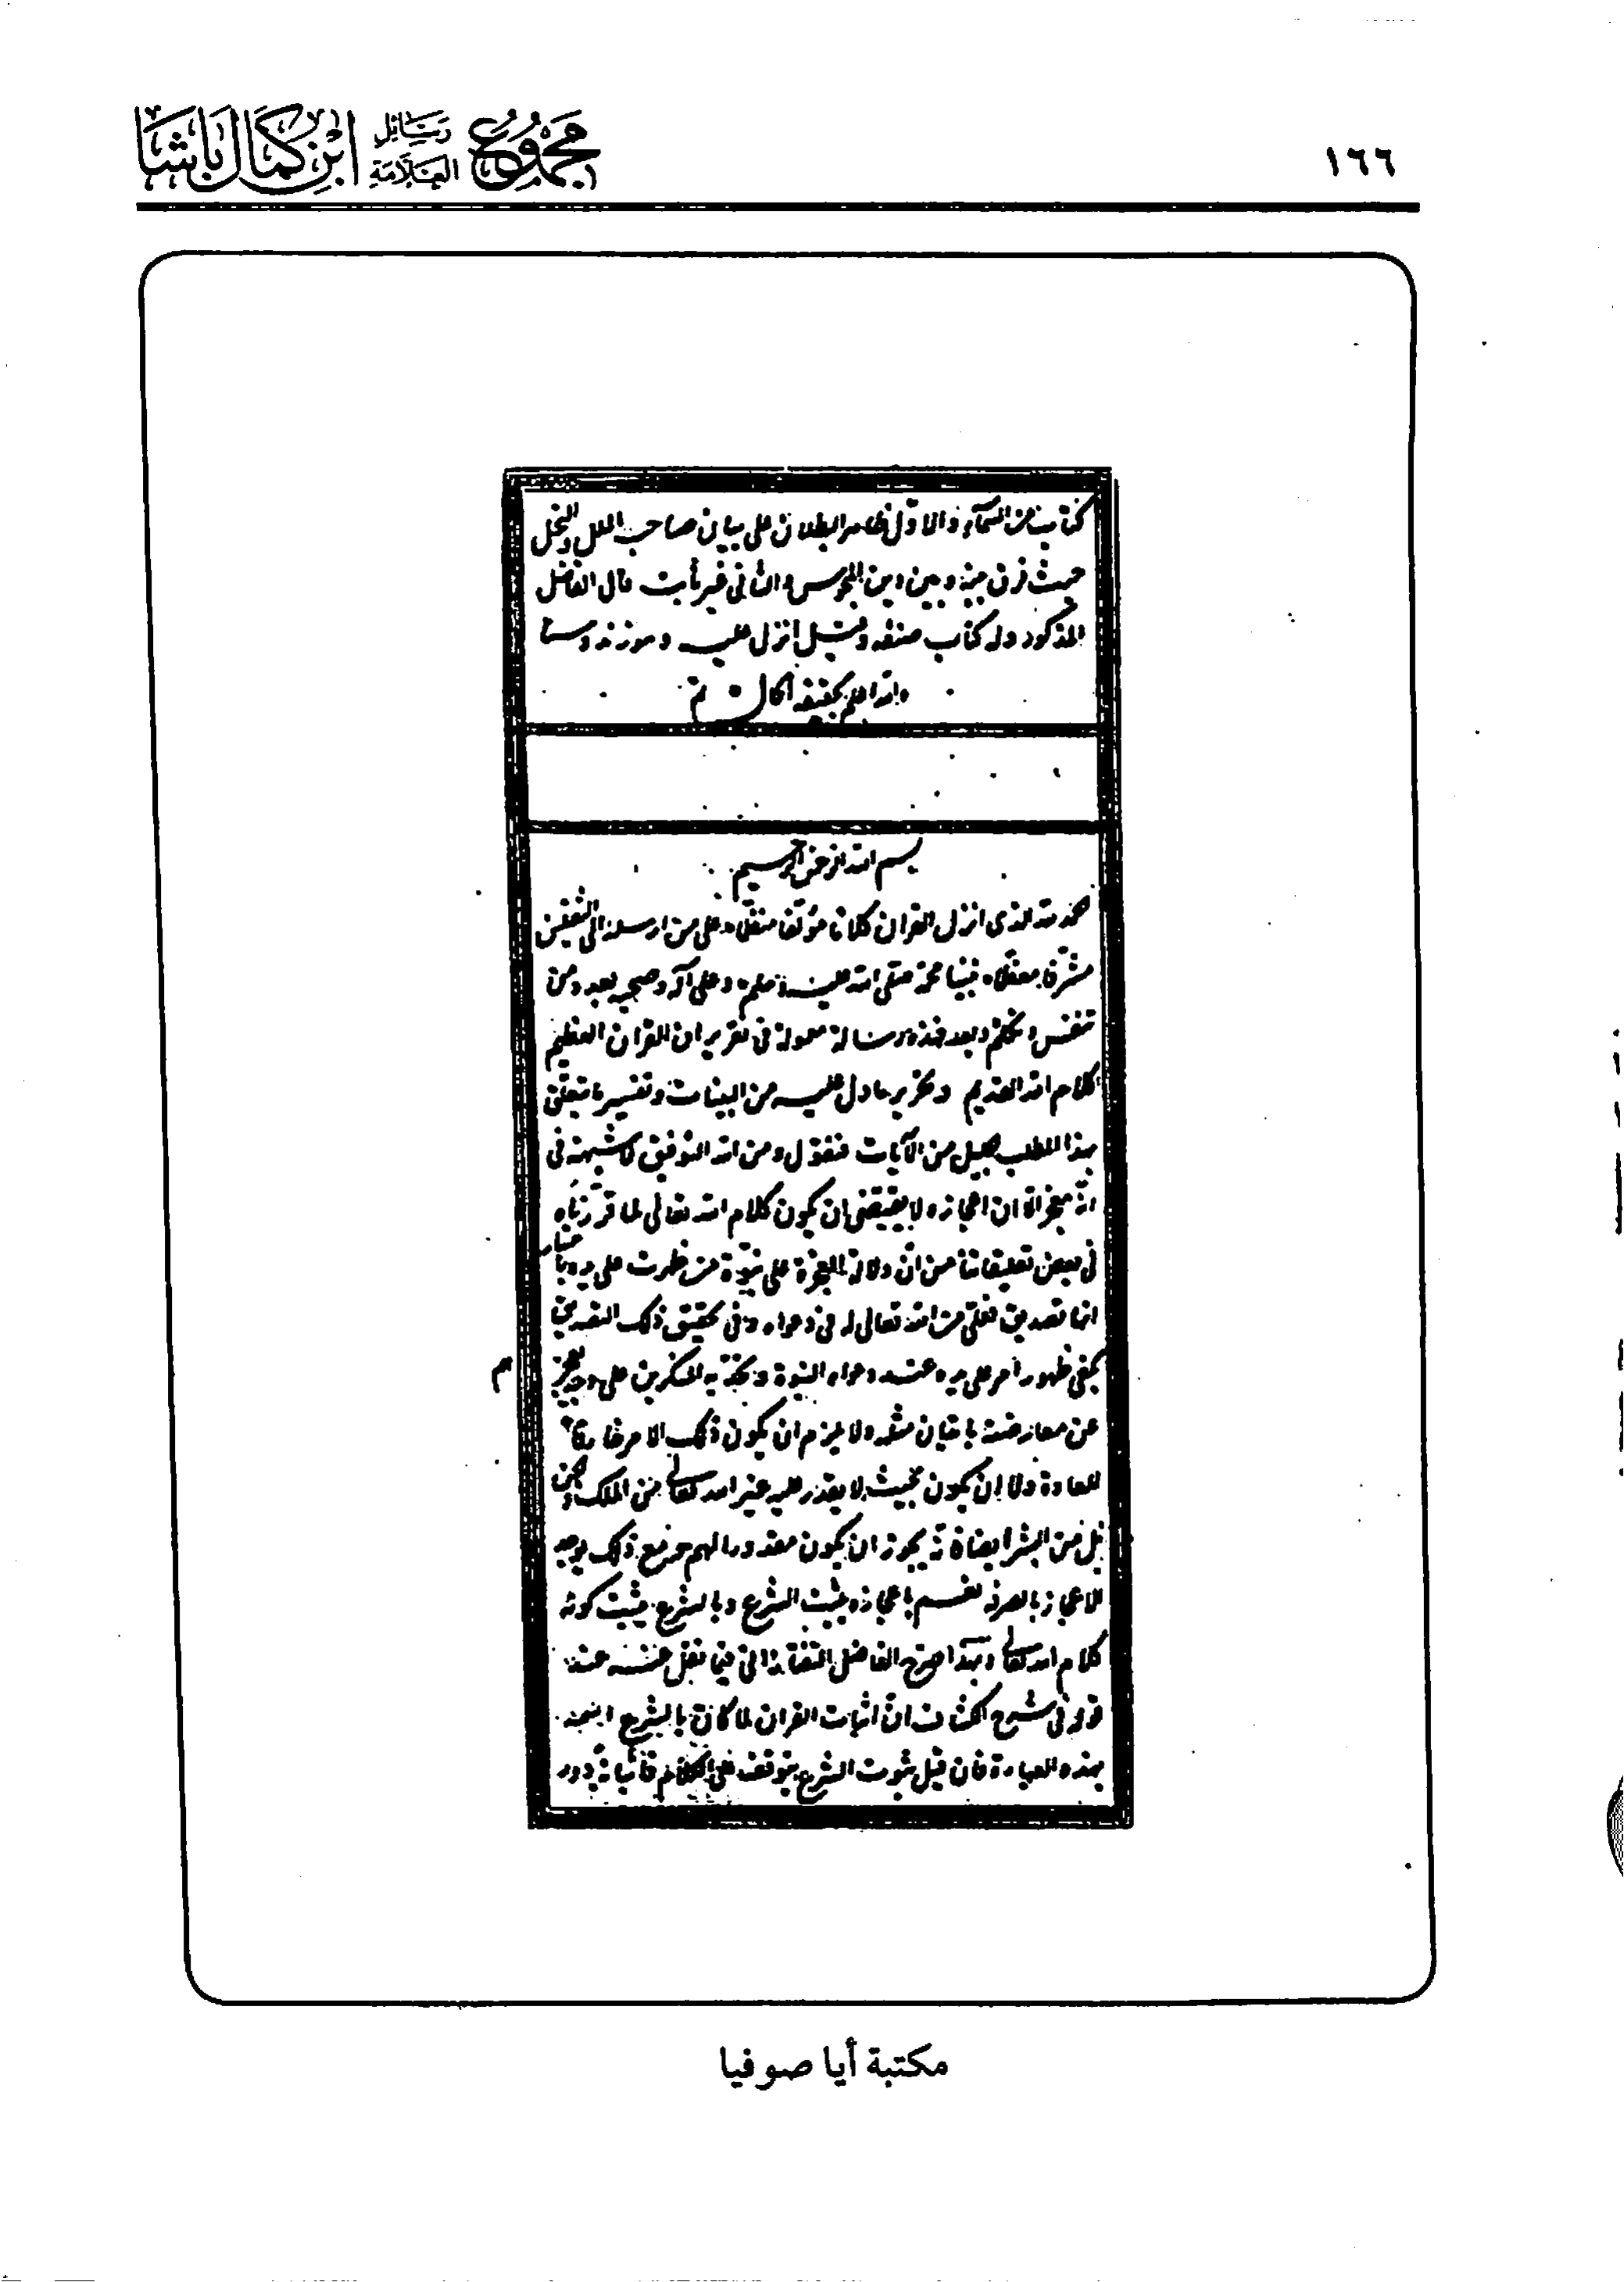 ١٦٦
مجموع رسائل العلامة ابن كمال باشا
كتاب من السماء والاول ظاهر البطلان على بيان صاحب الملل والنحل
حيث فرق بينه وبين دين المجوس والثانى غير ثابت قال الفاضل
المذكور وله كتاب صنفه وقيل انزل عليه وهو زند وستا
والله اعلم بحقيقة الحال تم
بسم الله الرحمن الرحيم
الحمد لله الذى انزل القران كلاما مؤلفا منظما وعلى من ارسله الى الثقلين
مشرفا معظما نبينا محمد صلى الله عليه وسلم وعلى آله وصحبه بعدد من
تنفس وتكلم وبعد فهذه رسالة معمولة فى تقرير ان القران العظيم
كلام الله القديم وتحرير ما دل عليه من البينات وتفسير ما يتعلق
بهذا المطلب الجليل من الآيات فنقول ومن الله التوفيق لا شبهة فى
انه معجز الا ان اعجازه لا يقتضى ان يكون كلام الله تعالى لما قررناه
فى بعض تعليقاتنا من ان دلالة المعجزة على نبوة من ظهرت على يده باعتبار
انها تصديق فعلى من الله تعالى له فى دعواه وفى تحقيق ذلك التصديق
يكفى ظهور امر على يده عند دعواه النبوة وتحديه المنكرين على وجه يعجز
م
عن معارضته باتيان مثله ولا يلزم ان يكون ذلك الامر خارقا
للعادة ولا ان يكون بحيث لا يقدر عليه غير الله تعالى من الملك والجن
بل من البشر ايضا فانه يجوز ان يكون مقدورا لهم ومع ذلك يوجد
الاعجاز بالصرفة نعم باعجازه يثبت الشرع وبالشرع يثبت كونه
كلام الله تعالى وبهذا صرح الفاضل التفتازانى فيما نقل عنه عند
قوله فى شرح الكشاف ان اثبات القران لما كان بالشرع
بهذه العبارة فان قيل ثبوت الشرع يتوقف على الكلام فاثباته دور
مكتبة أيا صوفيا